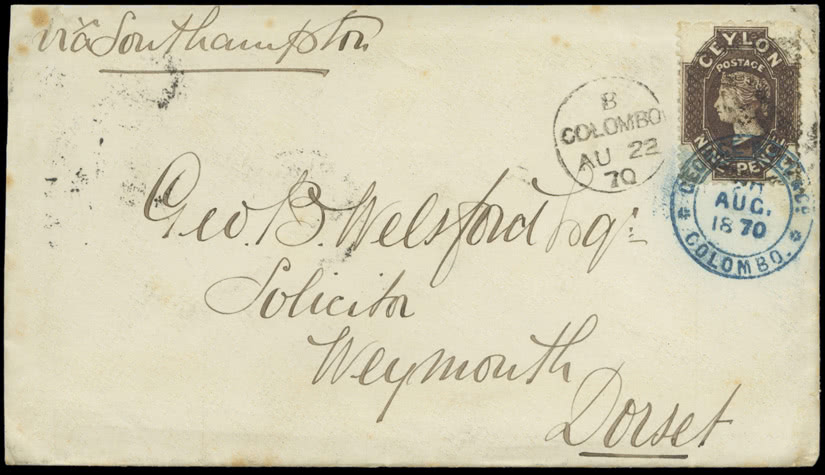 via Southampton
CEYLON
POSTAGE
B
COLOMBO
AU 22
70
AUG.
1870
COLOMBO.
Geo. B. Welsford Esqr
Solicitor
Weymouth
Dorset